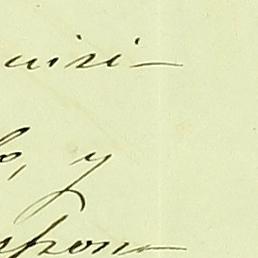 uisi-
lo, y
spon-